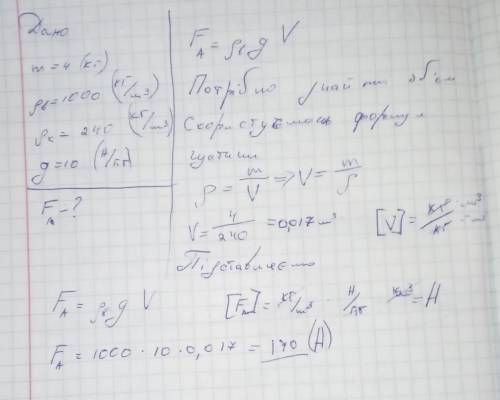 Дано
m = 4 (кг)
ρв = 1000 (кг/м3)
ρс = 240 (кг/м3)
g = 10 (Н/кг)
FА - ?
FА = ρв g V
Потрібно знайти об'єм
Скористуємось формул
густини
ρ = m/V => V = m/ρ
V = 4/240 = 0,017 м³ [V] = кг · м³/кг
Підставляємо
FА = ρв g V [FА] = кг/м3 · Н/кг · м3 = Н
FА = 1000 · 10 · 0,017 = 170 (Н)